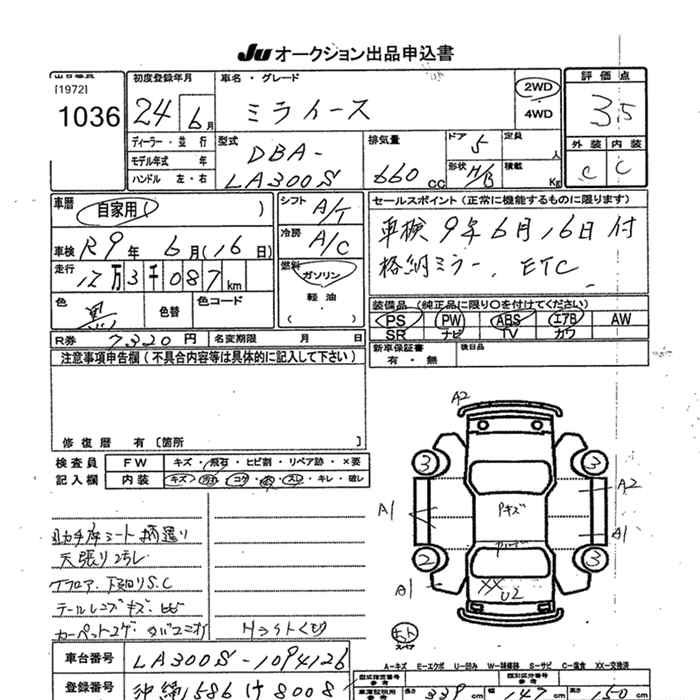 JU オークション出品申込書
[1972]
1036
初度登録年月
24 6月
ディーラー・並行
モデル年式 年
ハンドル 左・右
車名・グレード
ミライース
2WD
4WD
型式
DBA-
LA300S
排気量
660 CC
ドア 5
形状 H/B
定員 人
積載 Kg
評価点
3.5
外装 内装
C C
車歴
自家用( )
車検 R9年 6月(16日)
走行 12万3千087km
色 黒
色替
色コード
シフト A/T
冷房 A/C
燃料
ガソリン
軽油
( )
セールスポイント(正常に機能するものに限ります)
車検 9年6月16日付
格納ミラー、ETC
装備品(純正品に限り○を付けてください)
PS PW ABS エアB AW
SR ナビ TV カワ
新車保証書
有・無
後日品
R券 7320円
名変期限 月 日
注意事項申告欄(不具合内容等は具体的に記入して下さい)
修復歴 有[箇所 ]
検査員
記入欄
FW キズ・飛石・ヒビ割・リペア跡・×要
内装 キズ・汚れ・コゲ・穴・スレ・キレ・破レ
助手席シート
天張り
下廻りS.C
テールレンズキズ・ヒビ
カーペットコゲ・タバコ
Hライトくもり
A2
3 3
A1 A2
Pキズ
A1
2 3
A1
XX
U2
スペア
A-キズ E-エクボ U-凹み W-補修跡 S-サビ C-腐食 XX-交換済
車台番号 LA300S-1094126
登録番号 沖縄 586 け 8008
型式指定番号 類別区分番号
339cm 147cm 150cm